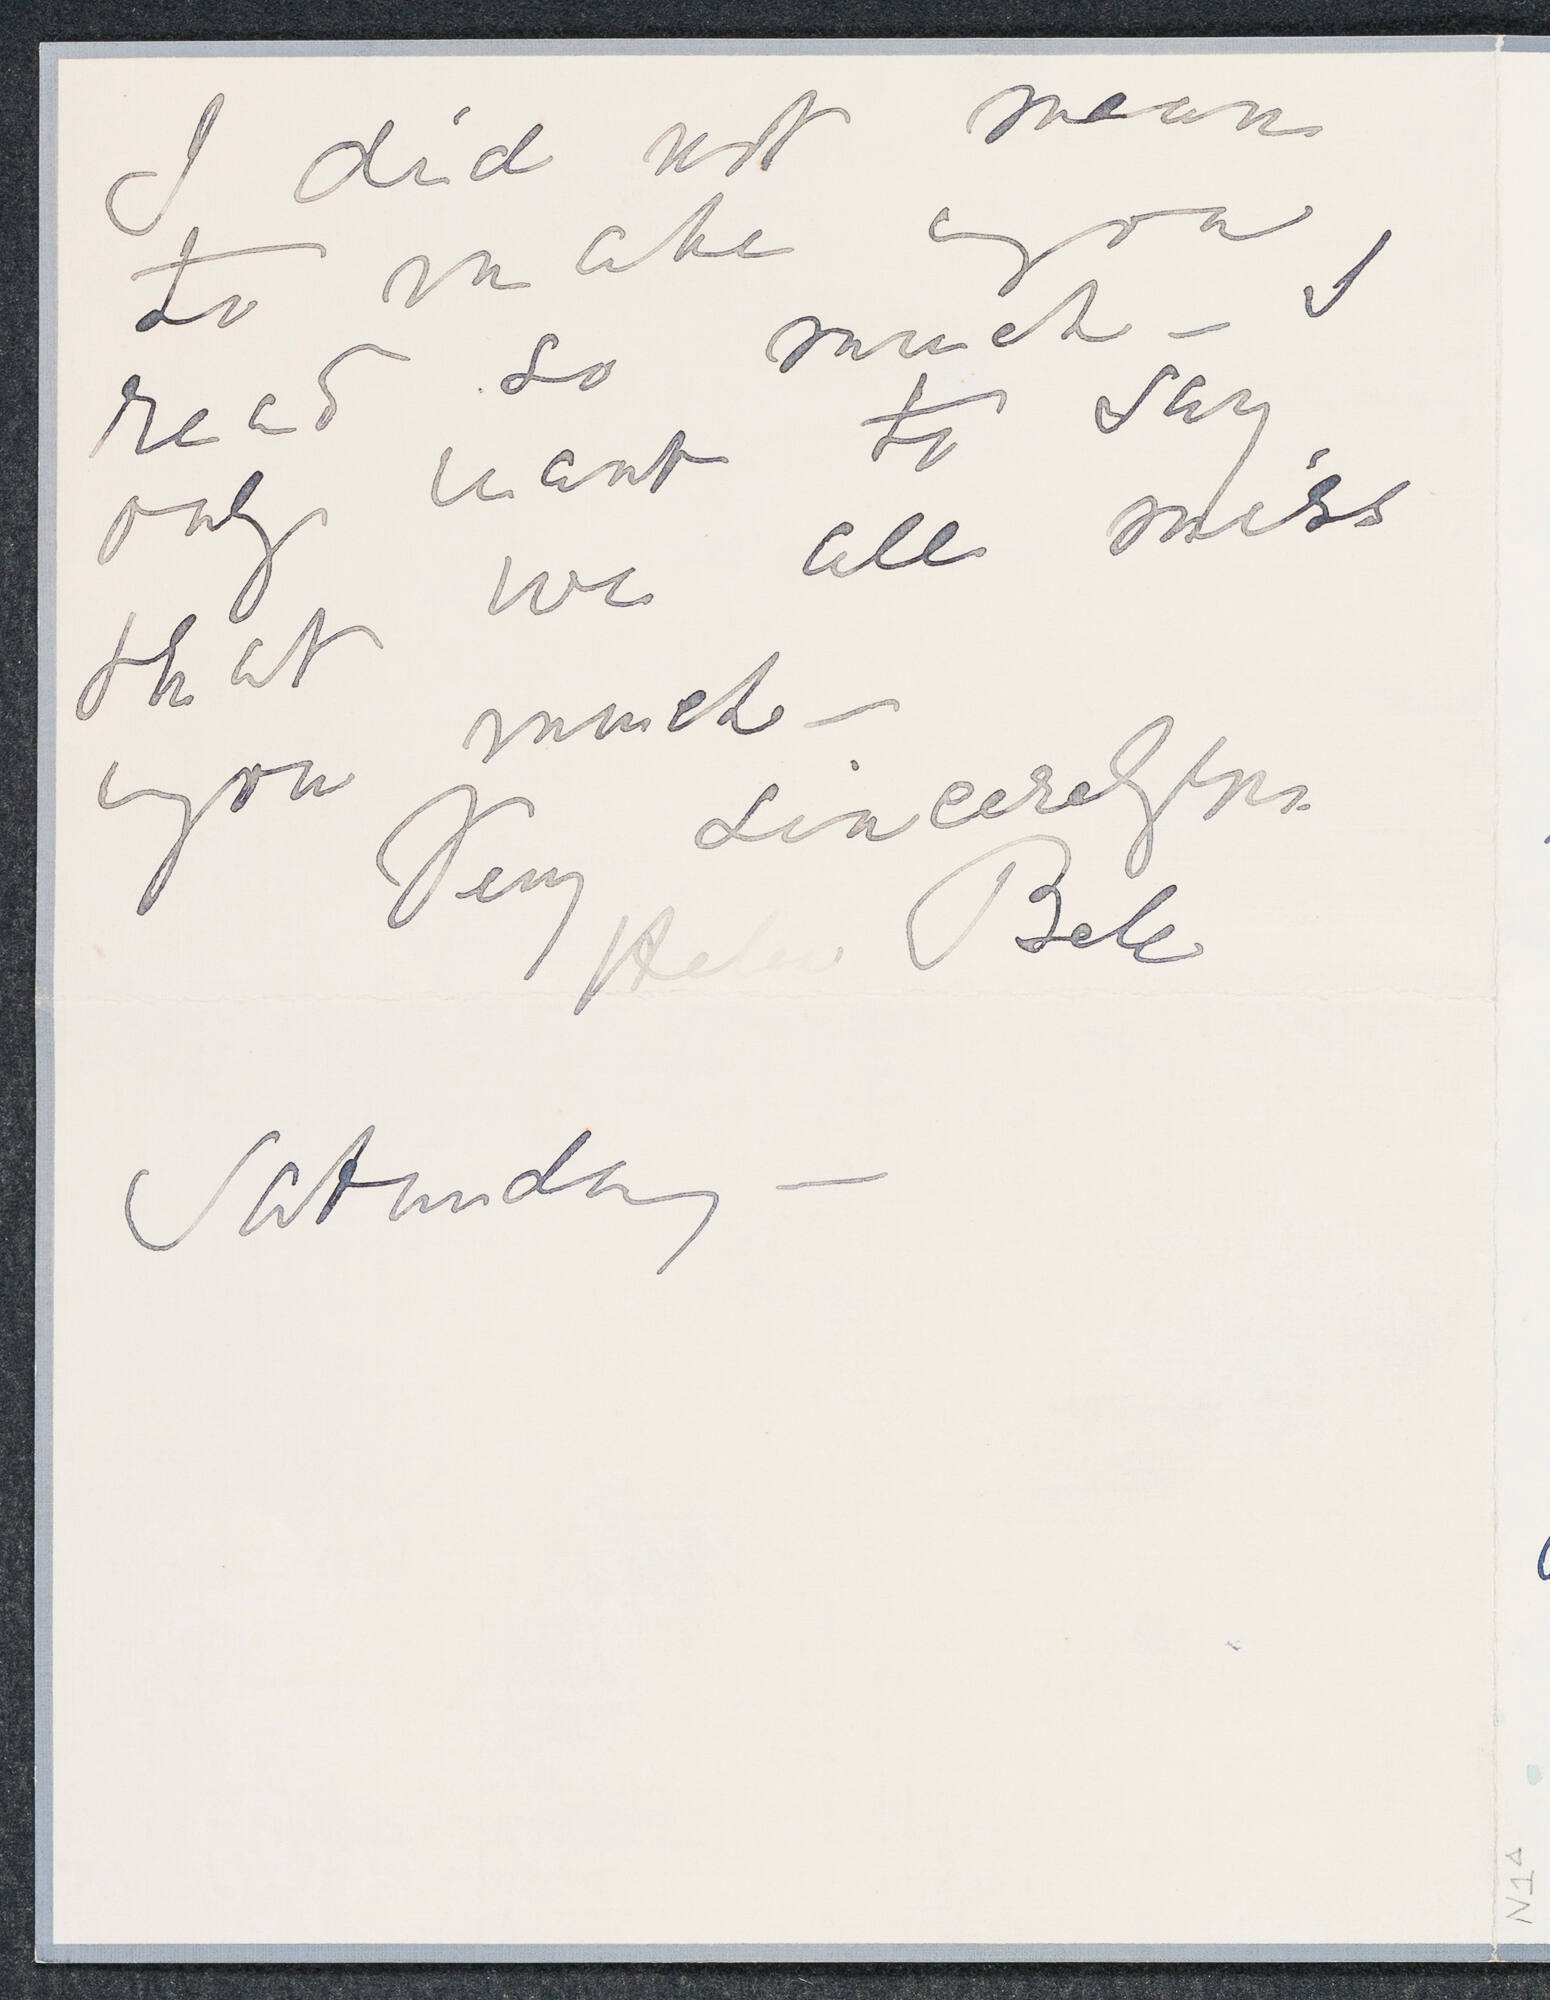 I did not mean
to make you
read so much - I
only want to say
that we all miss
you much -
Very sincerely yrs.
Helen
Saturday -